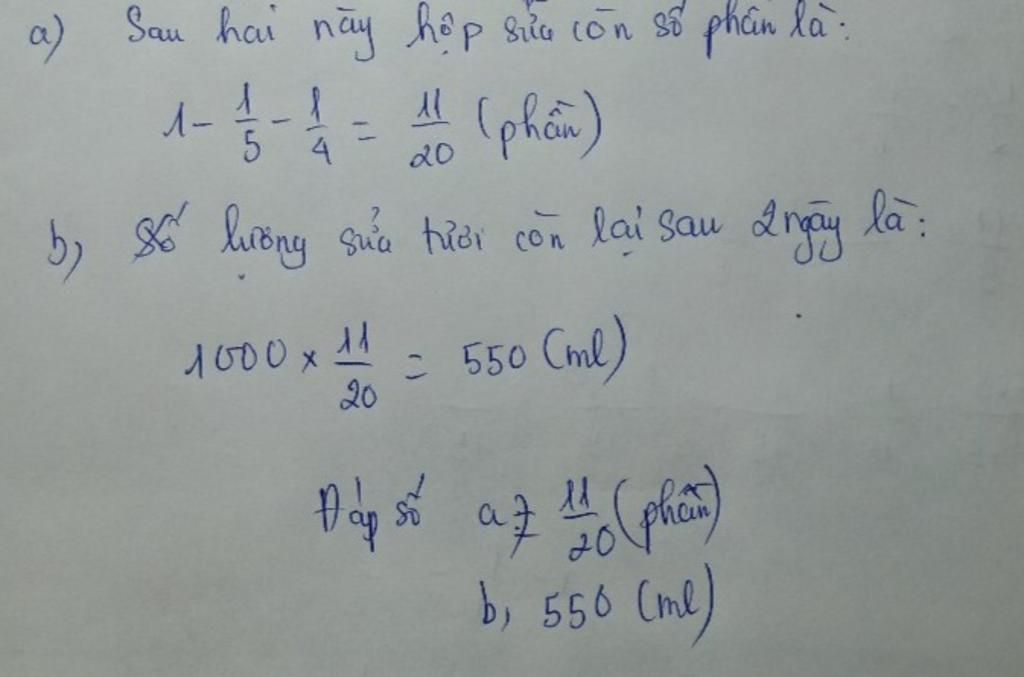 a) Sau hai này hộp sữa còn số phần là:
1 - 1/5 - 1/4 = 11/20 (phần)
b, Số lượng sửa tươi còn lại sau 2 ngày là:
1000 × 11/20 = 550 (ml)
Đáp số a, 11/20 (phần)
b, 550 (ml)